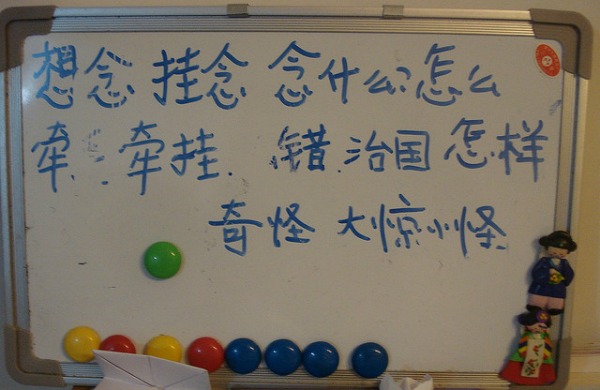 想念 挂念 念什么?怎么
牵. 牵挂. 错.治国 怎样
奇怪 大惊小怪